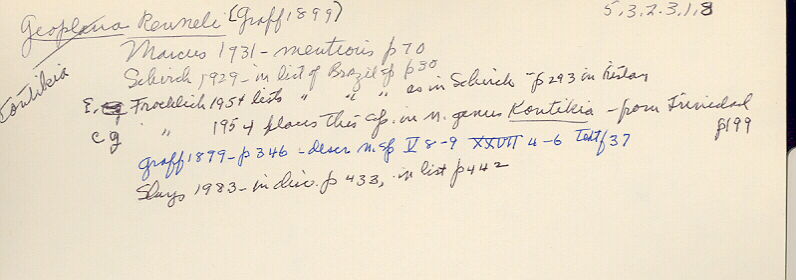 Geoplana Renneli (Graff 1899) 5,3,2,3,1,8
Kontikia
Marcus 1931 - mentions p 70
Schirch 1929 - in list of Brazil sp p 30
E. Froehlich 1954 lists " " " as in Schirch - p 293 in
C G " 1954 places this sp. in n. genus Kontikia - from Trinidad p199
Graff 1899 - p 346 - descr n. sp V 8-9 XXVII 4-6 Textf 37
Sluys 1983 - in disc. p 433, in list p 442